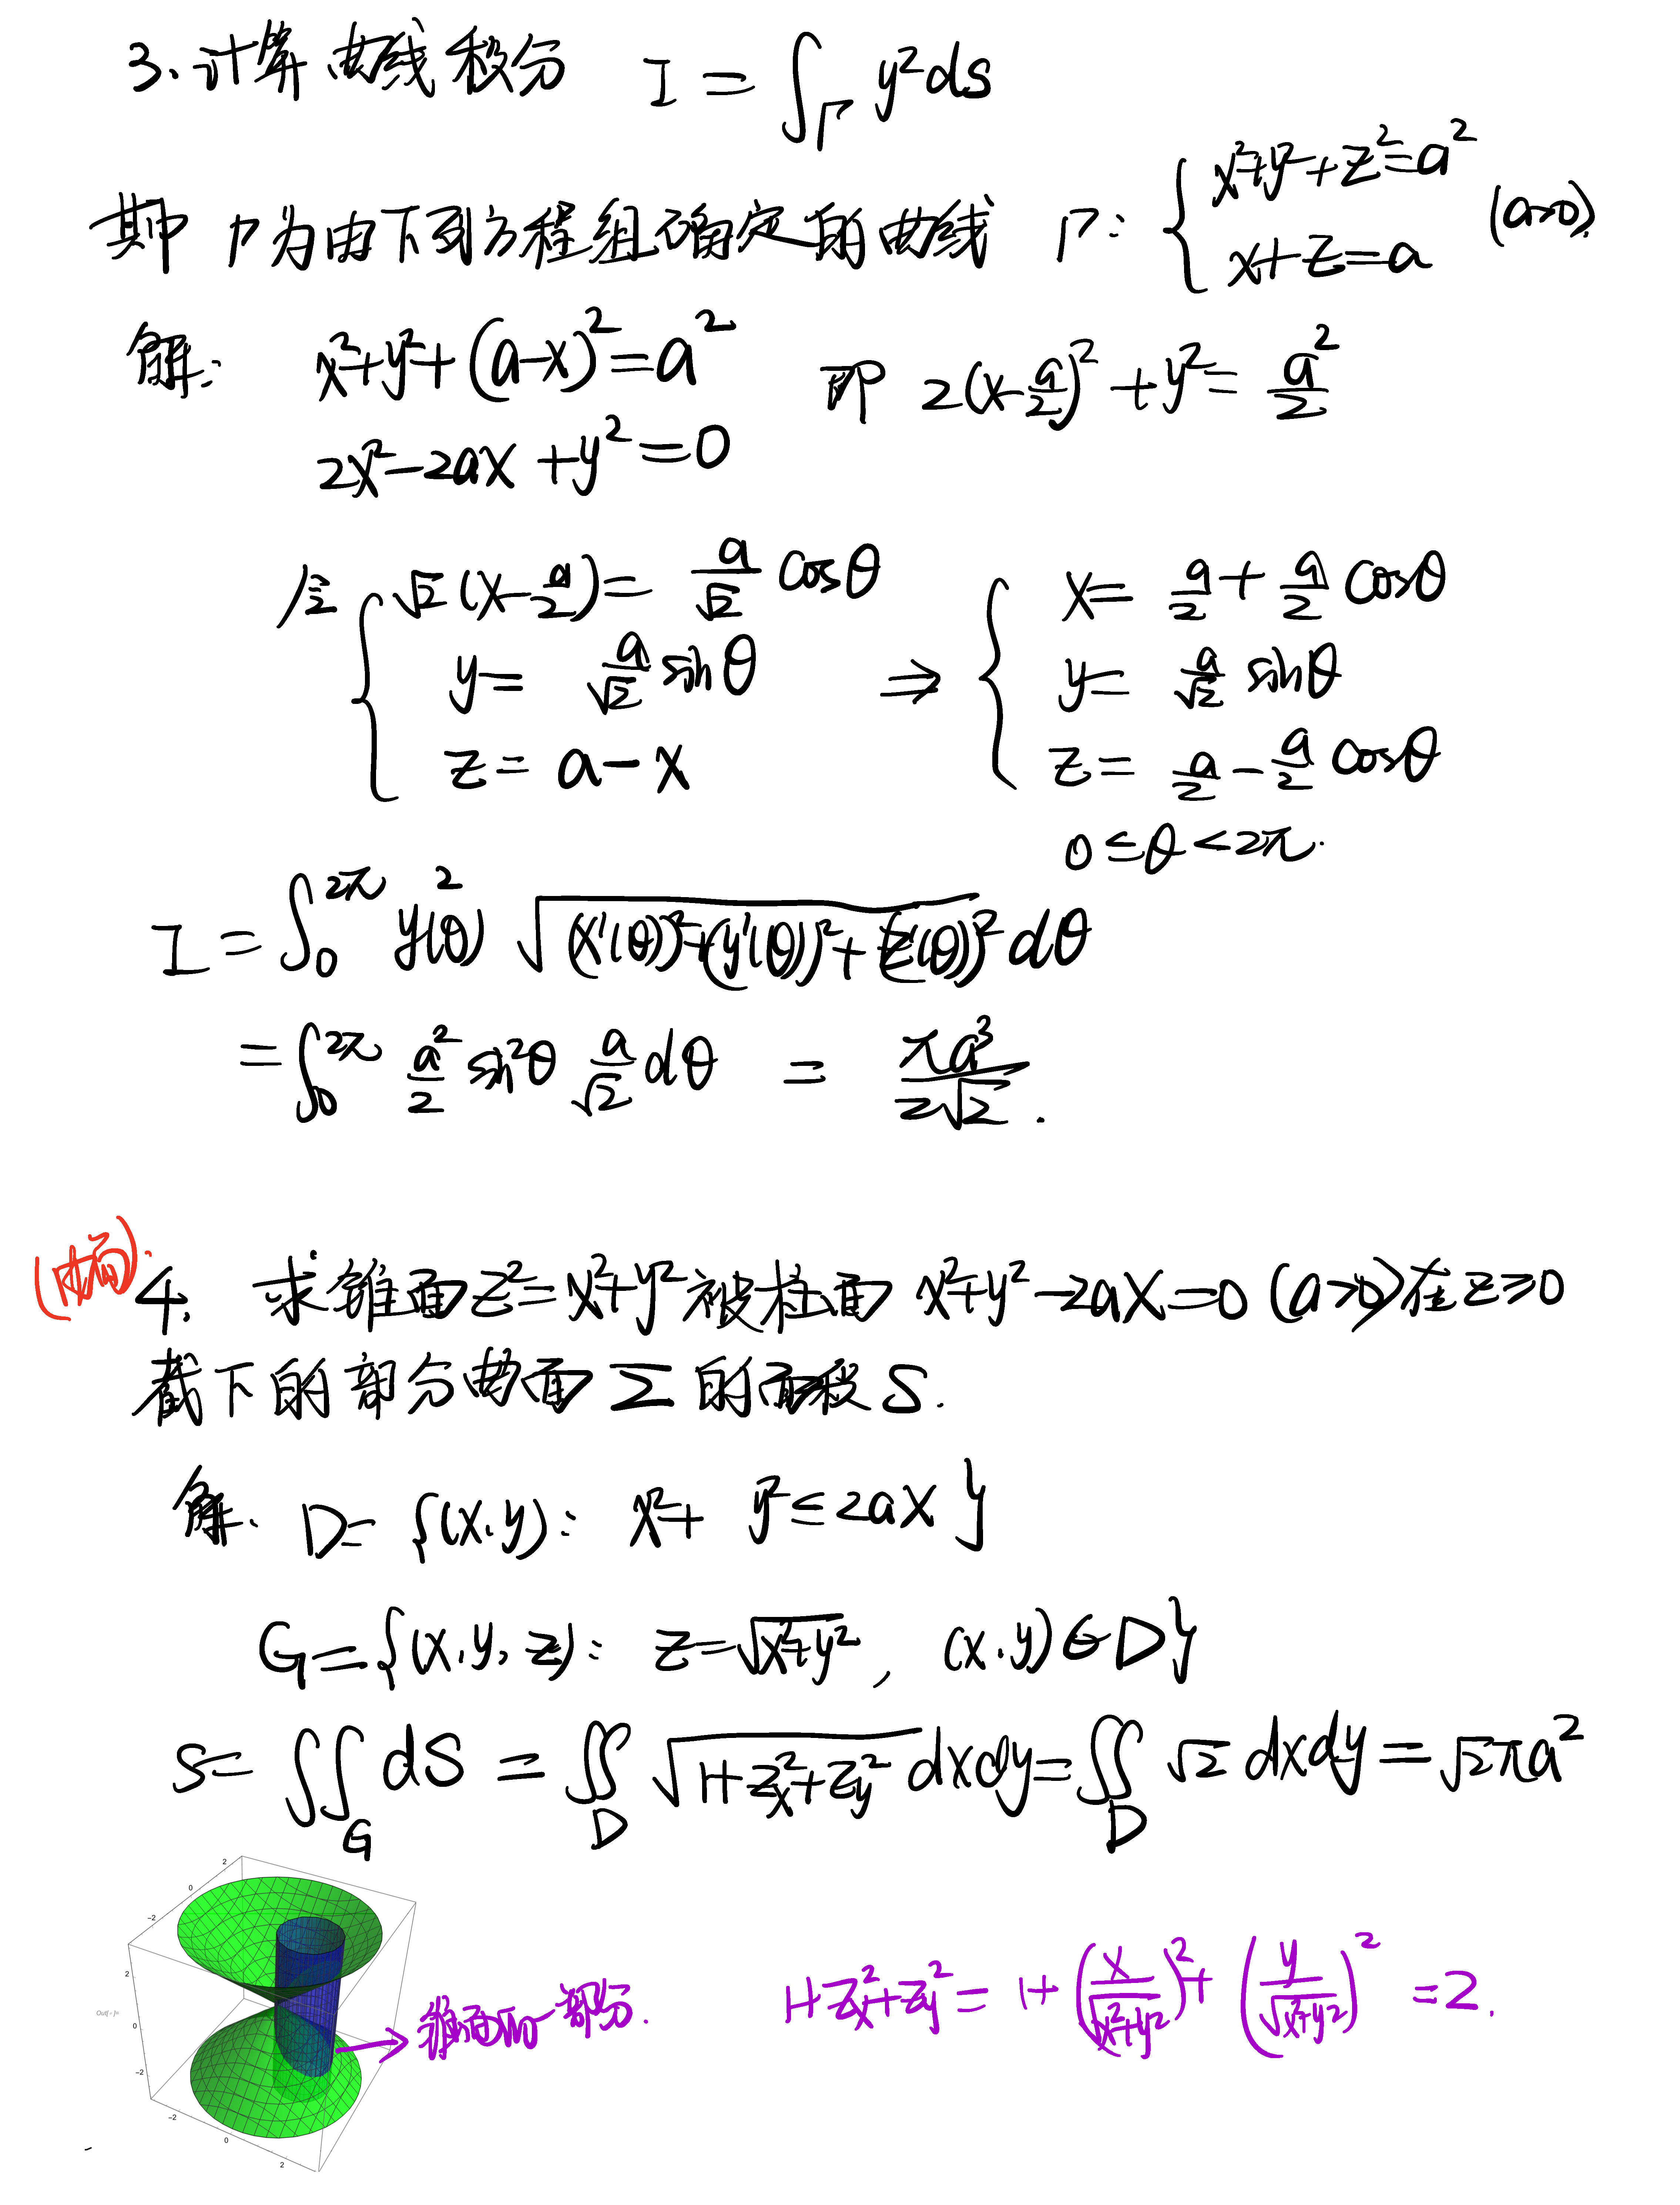 3. 计算曲线积分 I = ∫_Γ y² ds
其中 Γ 为由下列方程组确定的曲线 Γ: { x²+y²+z²=a² (a>0).
x+z=a
解: x²+y²+(a-x)²=a² 即 2(x-a/2)²+y²=a²/2
2x²-2ax+y²=0
√2(x-a/2)=a/√2 cosθ ⇒ { x=a/2+a/2 cosθ
y=a/√2 sinθ y=a/√2 sinθ
z=a-x z=a/2-a/2 cosθ
0≤θ<2π.
I=∫₀^{2π} y(θ)² √((x'(θ))²+(y'(θ))²+(z'(θ))²) dθ
=∫₀^{2π} a²/2 sin²θ a/√2 dθ = πa³/(2√2).
4. 求锥面 z²=x²+y² 被柱面 x²+y²-2ax=0 (a>0) 在 z≥0
截下的部分曲面 Σ 的面积 S.
解. D={(x,y): x²+y²≤2ax}
G={(x,y,z): z=√(x²+y²), (x,y)∈D}
S=∬_G dS=∬_D √(1+z_x²+z_y²) dxdy=∬_D √2 dxdy=√2πa²
锥面的一部分.
1+z_x²+z_y²=1+(x/√(x²+y²))²+(y/√(x²+y²))²=2.
2
0
-2
2
Out[-]=
0
-2
-2
0
2